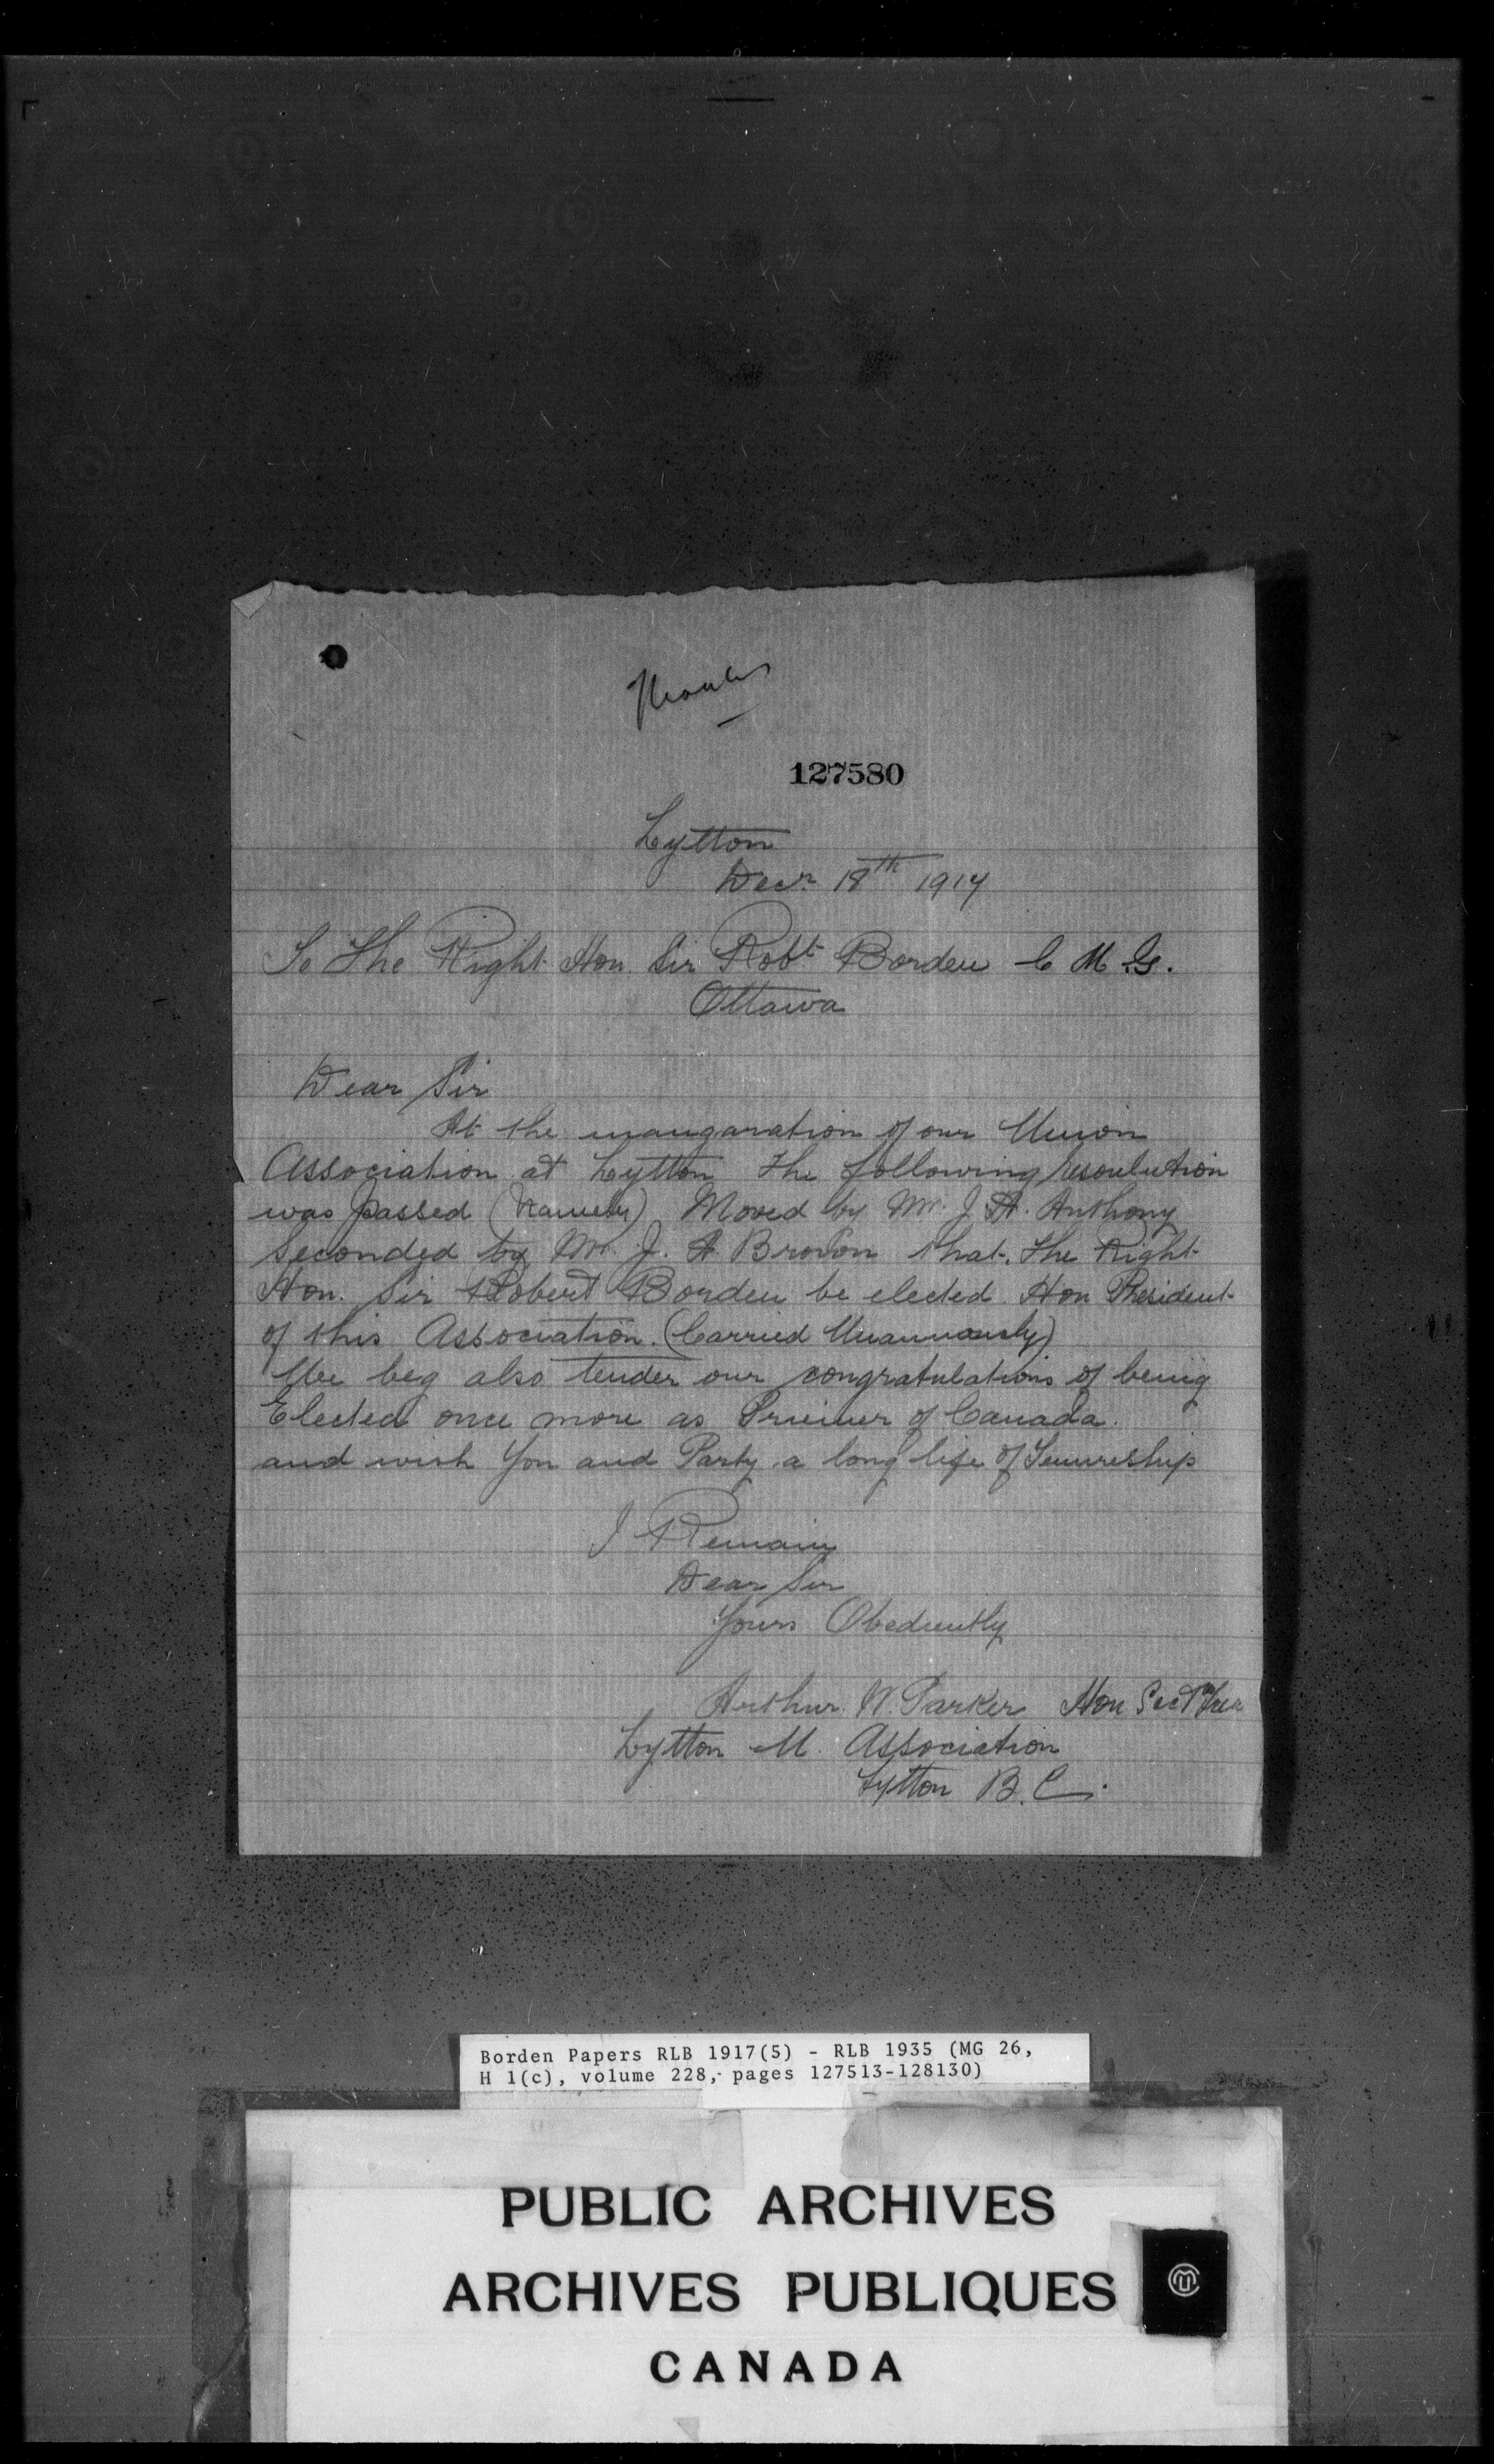 Thanks
127580
Lytton
Decr 18th 1917
To The Right Hon. Sir Robt Borden C M G.
Ottawa
Dear Sir
At the inaugaration of our Union
Association at Lytton The following resoulution
was passed (Namely) Moved by Mr. J. A. Anthony
Seconded by Mr. J. A Brown that. The Right
Hon. Sir Robert Borden be elected Hon President
of this Association. (Carried Unanimously)
We beg also tender our congratulations of being
Elected once more as Premier of Canada.
and wish You and Party a long life of Tenureship
I Remain
Dear Sir
Yours Obediently
Arthur. W. Parker Hon Sect Trea
Lytton U. Association
Lytton B.C.
Borden Papers RLB 1917(5) - RLB 1935 (MG 26,
H 1(c), volume 228, pages 127513-128130)
PUBLIC ARCHIVES
ARCHIVES PUBLIQUES
CANADA